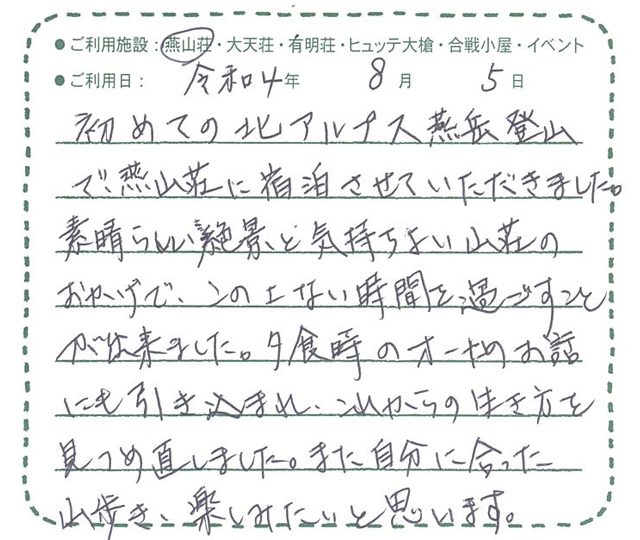 ●ご利用施設：燕山荘・大天荘・有明荘・ヒュッテ大槍・合戦小屋・イベント
●ご利用日： 令和4年 8月 5日
初めての北アルプス燕岳登山
で、燕山荘に宿泊させていただきました。
素晴らしい絶景と気持ちよい山荘の
おかげで、この上ない時間を過ごすこと
が出来ました。夕食時のオーナーのお話
にも引き込まれ、これからの生き方を
見つめ直しました。また自分に合った
山歩き、楽しみたいと思います。